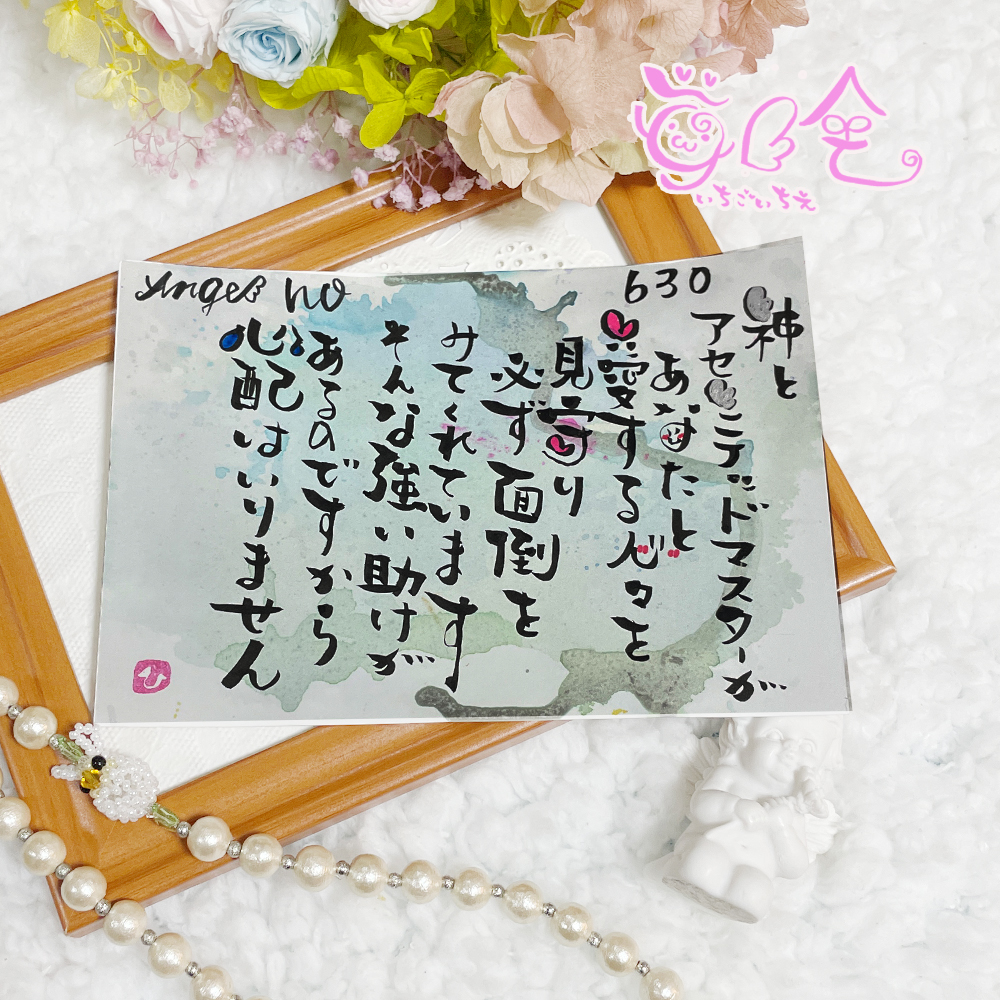 苺合笑
いちごいちえ
Angel no 630
神と
アセンデッドマスターが
あなたと
愛する人々を
見守り
必ず面倒を
みてくれています
そんな強い助けが
あるのですから
心配はいりません